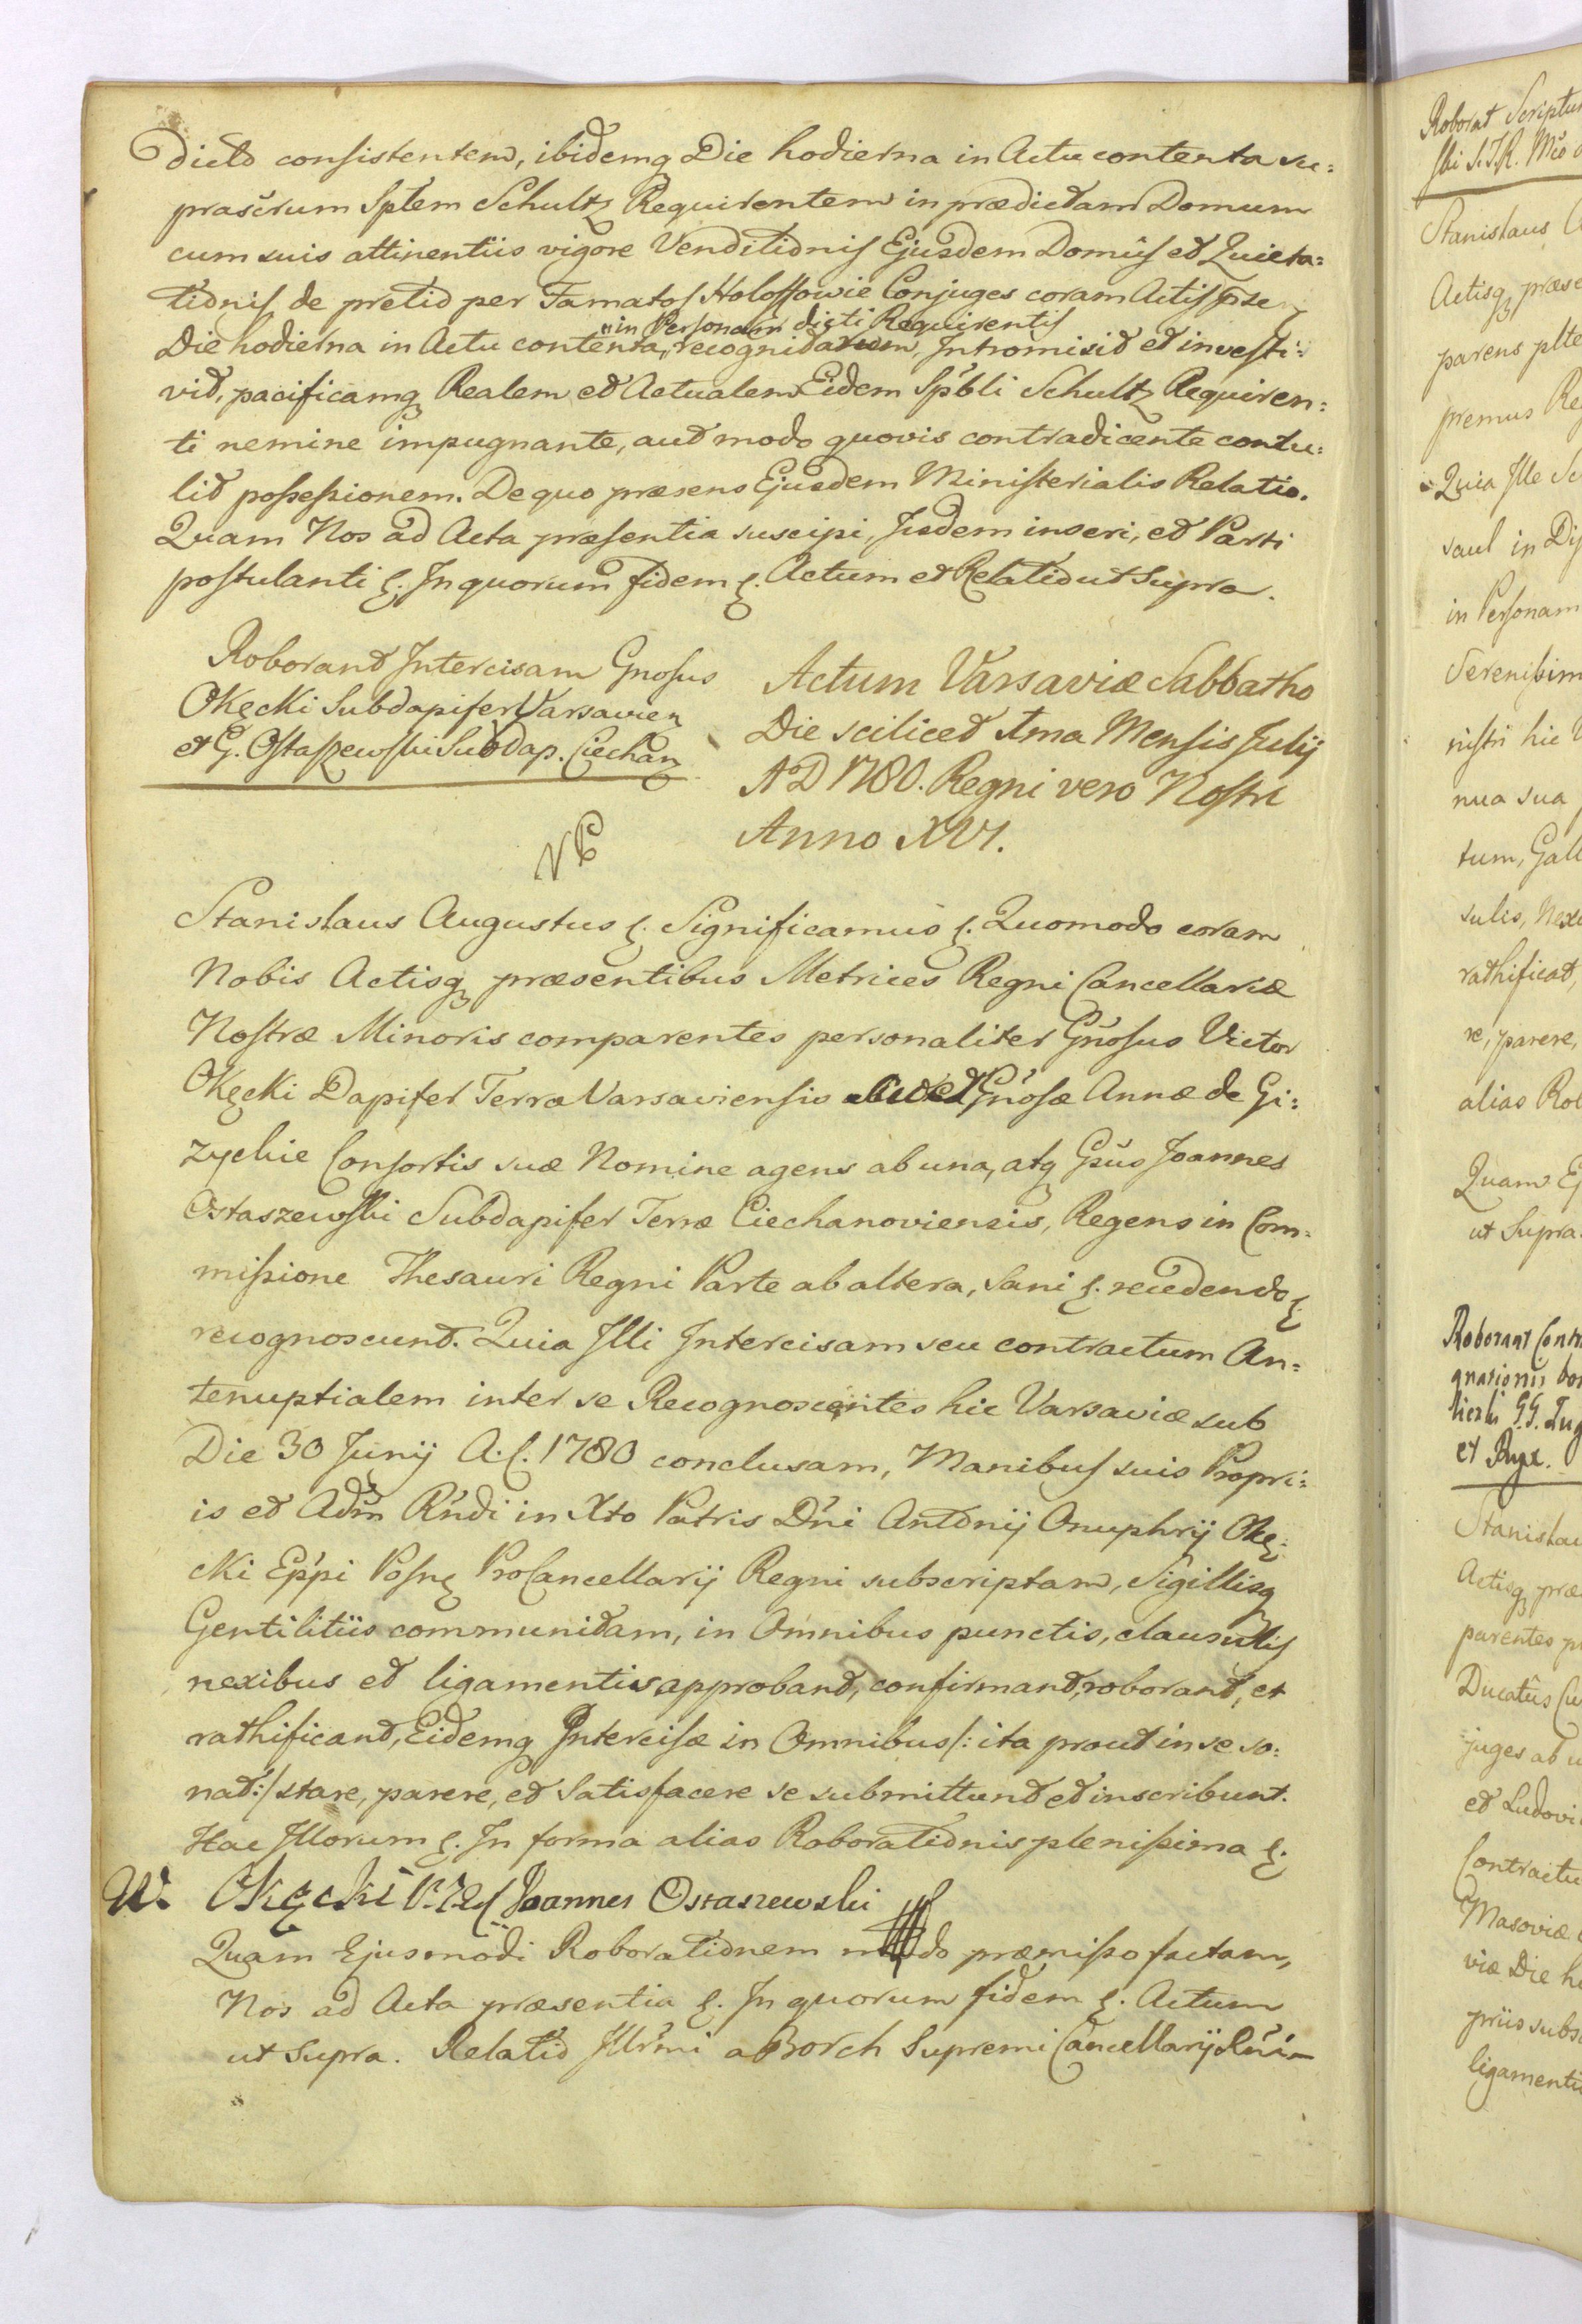 dicto consistentem, ibidemq Die hodierna in Actu contenta su=
prascrum Sptem Schultz Requirentem in prædictam Domum
cum suis attinentiis vigore Venditionis Ejusdem Domûs et Quieta=
tionis de pretio per Famatos Holossowie Conjuges coram Actis pse
"in Personam dicti Requirentis
Die hodierna in Actu contenta, recognitarum, Intromisit et investi=
vit, pacificamq Realem et Actualem Eidem Spbli Schultz Requiren=
ti nemine impugnante, aut modo quovis contradicente contu=
lit possessionem. De quo præsens Ejusdem Ministerialis Relatio.
Quam Nos ad Acta præsentia suscipi, Iisdem inseri, et Parti
postulanti &. In quorum fidem &. Actum et Relatio ut Supra.
Roborant Intercisam Gnosus
Okęcki Subdapifer Varsavien
et G. Ostaszewski Subdap. Ciechan
Actum Varsaviæ Sabbatho
Die scilicet 1ma Mensis Julij
A D 1780. Regni vero Nostri
Anno XVI.
Stanislaus Augustus &. Significamus &. Quomodo coram
Nobis Actisq præsentibus Metrices Regni Cancellariæ
Nostræ Minoris comparentes personaliter Gnosus Victor
Okęcki Dapifer Terræ Varsaviensis suo et Gnosæ Annæ de Gi=
zyckie Consortis suæ Nomine agens ab una, atq Gsus Joannes
Ostaszewski Subdapifer Terræ Ciechanoviensis, Regens in Com=
missione Thesauri Regni Parte ab altera, Sani &. recedendo &.
recognoscunt. Quia Illi Intercisam seu contractum An=
tenuptialem inter se Recognoscentes hic Varsaviæ sub
Die 30 Junij A. C. 1780 conclusam, Manibus suis Propri=
is et Adm Rndi in Xto Patris Dni Antonij Onuphrij Okę=
cki Eppi Posn ProCancellarij Regni subscriptam, Sigillisq
Gentilitiis communitam, in Omnibus punctis, clausulis
nexibus et ligamentis approbant, confirmant, roborant, et
rathificant, Eidemq Intercisæ in Omnibus /: ita prout in se so=
nat :/ stare, parere, et Satisfacere se submittunt et inscribunt.
Hac Illorum &. In forma alias Roborationis plenissima &.
W. Okęcki Joannes Ostaszewski
Quam Ejusmodi Roborationem modo præmisso factam,
Nos ad Acta præsentia &. In quorum fidem &. Actum
ut Supra. Relatio Illrmi a Borch Supremi Cancellarij Rni
Roborat Scriptu
ski S. J. R. Mtis
Stanislaus
Actisq præse
parens plte
premus Re
Quia Ille Sc
in Personam
Serenissim
nistri hic
nua sua
tum, Gall
sulis, Nexi
rathificat,
re, parere,
alias Rob
Quam Ej
ut Supra.
Roborant Contr
gnationis bo
et Ryx.
Stanislau
Actisq præ
parentes p
Ducatûs Cu
juges ab u
et Ludovi
Contractu
Masoviæ
viæ Die h
priis subs
ligamenti